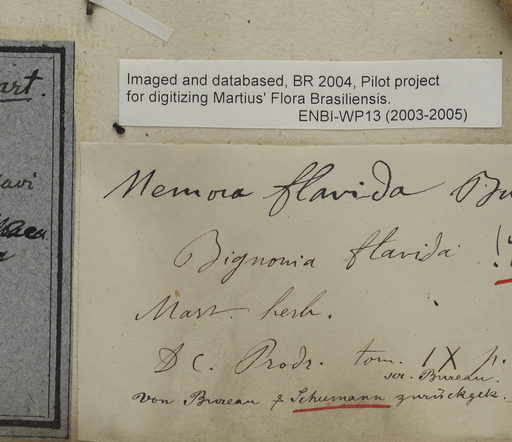 art.
Imaged and databased, BR 2004, Pilot project
for digitizing Martius' Flora Brasiliensis.
ENBI-WP13 (2003-2005)
Memora flavida Bu
Bignonia flavida !
Mart. herb.
D C. Prodr. tom. IX p.
scr. Bureau.
von Bureau & Schumann zurückgek.